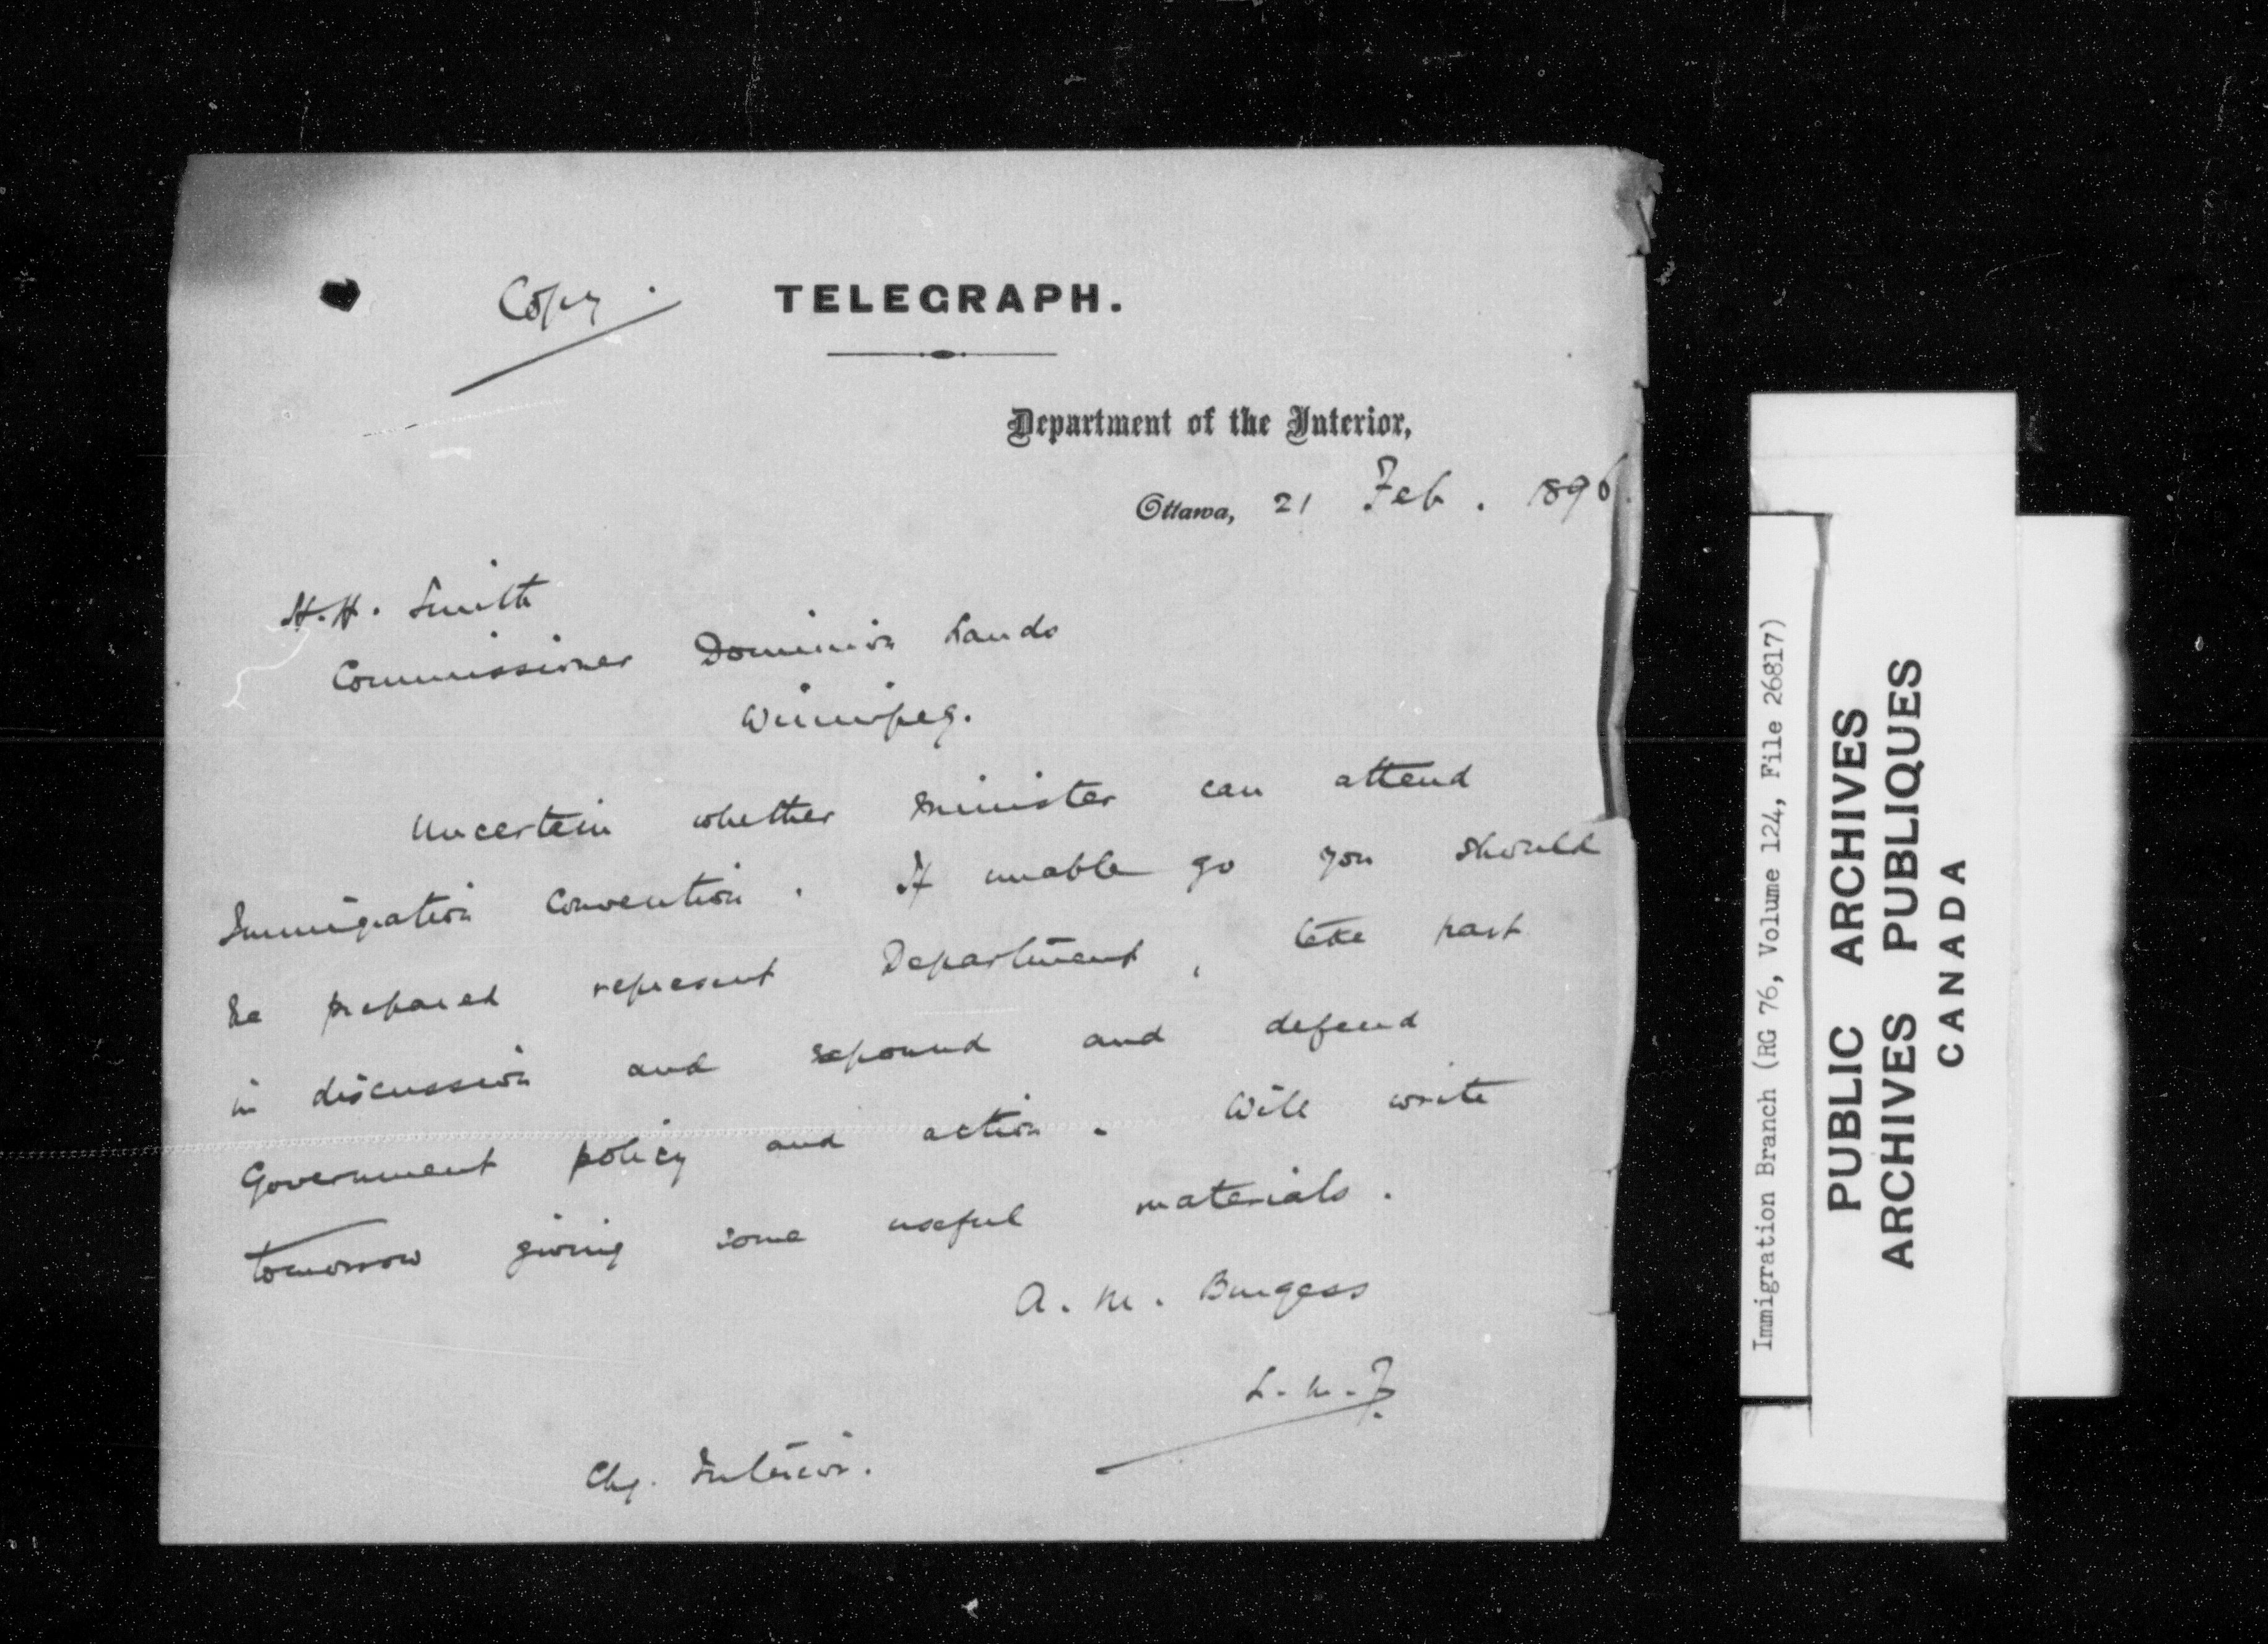 Copy.
TELEGRAPH.
Department of the Interior,
Ottawa, 21 Feb. 1896
H.H. Smith
Commissioner Dominion Lands
Winnipeg.
Uncertain whether Minister can attend
Immigration Convention. If unable go you should
be prepared represent Department, take part
in discussion and expound and defend
Government policy and action. Will write
tomorrow giving some useful materials.
A. M. Burgess
L. M. F.
Chg. Interior.
Immigration Branch (RG 76, Volume 124, File 26817)
PUBLIC ARCHIVES
ARCHIVES PUBLIQUES
CANADA